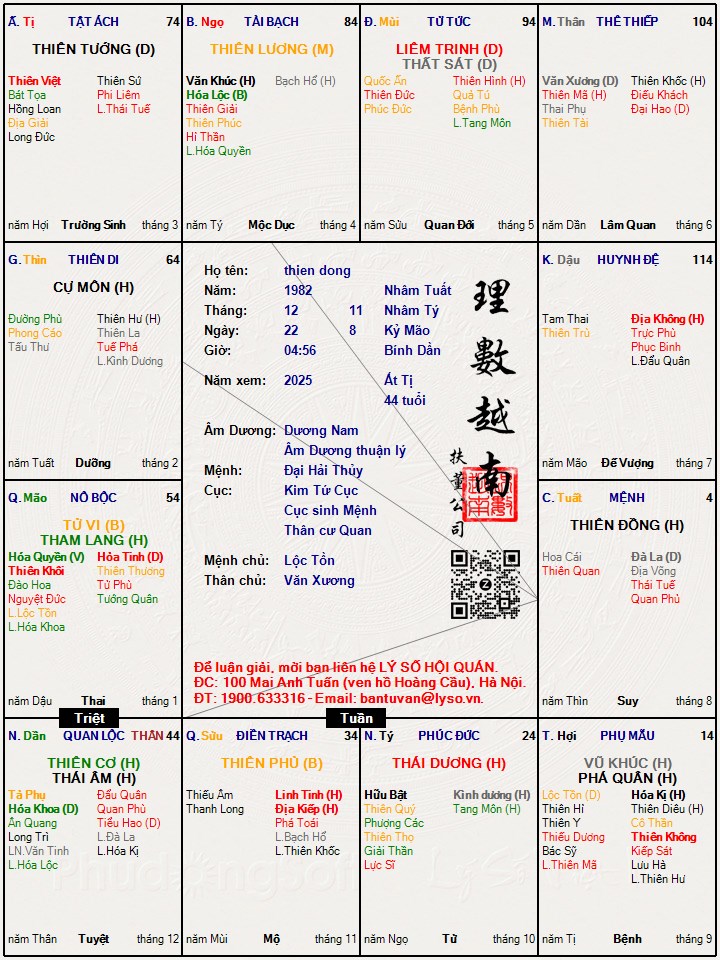 Ấ. Tị TẬT ÁCH 74
THIÊN TƯỚNG (Đ)
Thiên Việt Thiên Sứ
Bát Tọa Phi Liêm
Hồng Loan L.Thái Tuế
Địa Giải
Long Đức
năm Hợi Trường Sinh tháng 3
B. Ngọ TÀI BẠCH 84
THIÊN LƯƠNG (M)
Văn Khúc (H) Bạch Hổ (H)
Hóa Lộc (B)
Thiên Giải
Thiên Phúc
Hỉ Thần
L.Hóa Quyền
năm Tý Mộc Dục tháng 4
Đ. Mùi TỬ TỨC 94
LIÊM TRINH (Đ)
THẤT SÁT (Đ)
Quốc Ấn Thiên Hình (H)
Thiên Đức Quả Tú
Phúc Đức Bệnh Phù
L.Tang Môn
năm Sửu Quan Đới tháng 5
M. Thân THÊ THIẾP 104
Văn Xương (Đ) Thiên Khốc (H)
Thiên Mã (H) Điếu Khách
Thai Phụ Đại Hao (Đ)
Thiên Tài
năm Dần Lâm Quan tháng 6
G. Thìn THIÊN DI 64
CỰ MÔN (H)
Đường Phù Thiên Hư (H)
Phong Cáo Thiên La
Tấu Thư Tuế Phá
L.Kình Dương
năm Tuất Dưỡng tháng 2
Họ tên: thien dong
Năm: 1982 Nhâm Tuất
Tháng: 12 11 Nhâm Tý
Ngày: 22 8 Kỷ Mão
Giờ: 04:56 Bính Dần
Năm xem: 2025 Ất Tị
44 tuổi
Âm Dương: Dương Nam
Âm Dương thuận lý
Mệnh: Đại Hải Thủy
Cục: Kim Tứ Cục
Cục sinh Mệnh
Thân cư Quan
Mệnh chủ: Lộc Tồn
Thân chủ: Văn Xương
理數越南
扶董公司
Để luận giải, mời bạn liên hệ LÝ SỐ HỘI QUÁN.
ĐC: 100 Mai Anh Tuấn (ven hồ Hoàng Cầu), Hà Nội.
ĐT: 1900.633316 - Email: bantuvan@lyso.vn.
K. Dậu HUYNH ĐỆ 114
Tam Thai Địa Không (H)
Thiên Trù Trực Phù
Phục Binh
L.Đẩu Quân
năm Mão Đế Vượng tháng 7
Q. Mão NÔ BỘC 54
TỬ VI (B)
THAM LANG (H)
Hóa Quyền (V) Hỏa Tinh (Đ)
Thiên Khôi Thiên Thương
Đào Hoa Tử Phù
Nguyệt Đức Tướng Quân
L.Lộc Tồn
L.Hóa Khoa
năm Dậu Thai tháng 1
C. Tuất MỆNH 4
THIÊN ĐỒNG (H)
Hoa Cái Đà La (Đ)
Thiên Quan Địa Võng
Thái Tuế
Quan Phủ
năm Thìn Suy tháng 8
Triệt
Tuần
N. Dần QUAN LỘC THÂN 44
THIÊN CƠ (H)
THÁI ÂM (H)
Tả Phụ Đẩu Quân
Hóa Khoa (Đ) Quan Phù
Ân Quang Tiểu Hao (Đ)
Long Trì L.Đà La
LN.Văn Tinh L.Hóa Kị
L.Hóa Lộc
năm Thân Tuyệt tháng 12
Q. Sửu ĐIỀN TRẠCH 34
THIÊN PHỦ (B)
Thiếu Âm Linh Tinh (H)
Thanh Long Địa Kiếp (H)
Phá Toái
L.Bạch Hổ
L.Thiên Khốc
năm Mùi Mộ tháng 11
N. Tý PHÚC ĐỨC 24
THÁI DƯƠNG (H)
Hữu Bật Kình dương (H)
Thiên Quý Tang Môn (H)
Phượng Các
Thiên Thọ
Giải Thần
Lực Sĩ
năm Ngọ Tử tháng 10
T. Hợi PHỤ MẪU 14
VŨ KHÚC (H)
PHÁ QUÂN (H)
Lộc Tồn (Đ) Hóa Kị (H)
Thiên Hỉ Thiên Diêu (H)
Thiên Y Cô Thần
Thiếu Dương Thiên Không
Bác Sỹ Kiếp Sát
L.Thiên Mã Lưu Hà
L.Thiên Hư
năm Tị Bệnh tháng 9